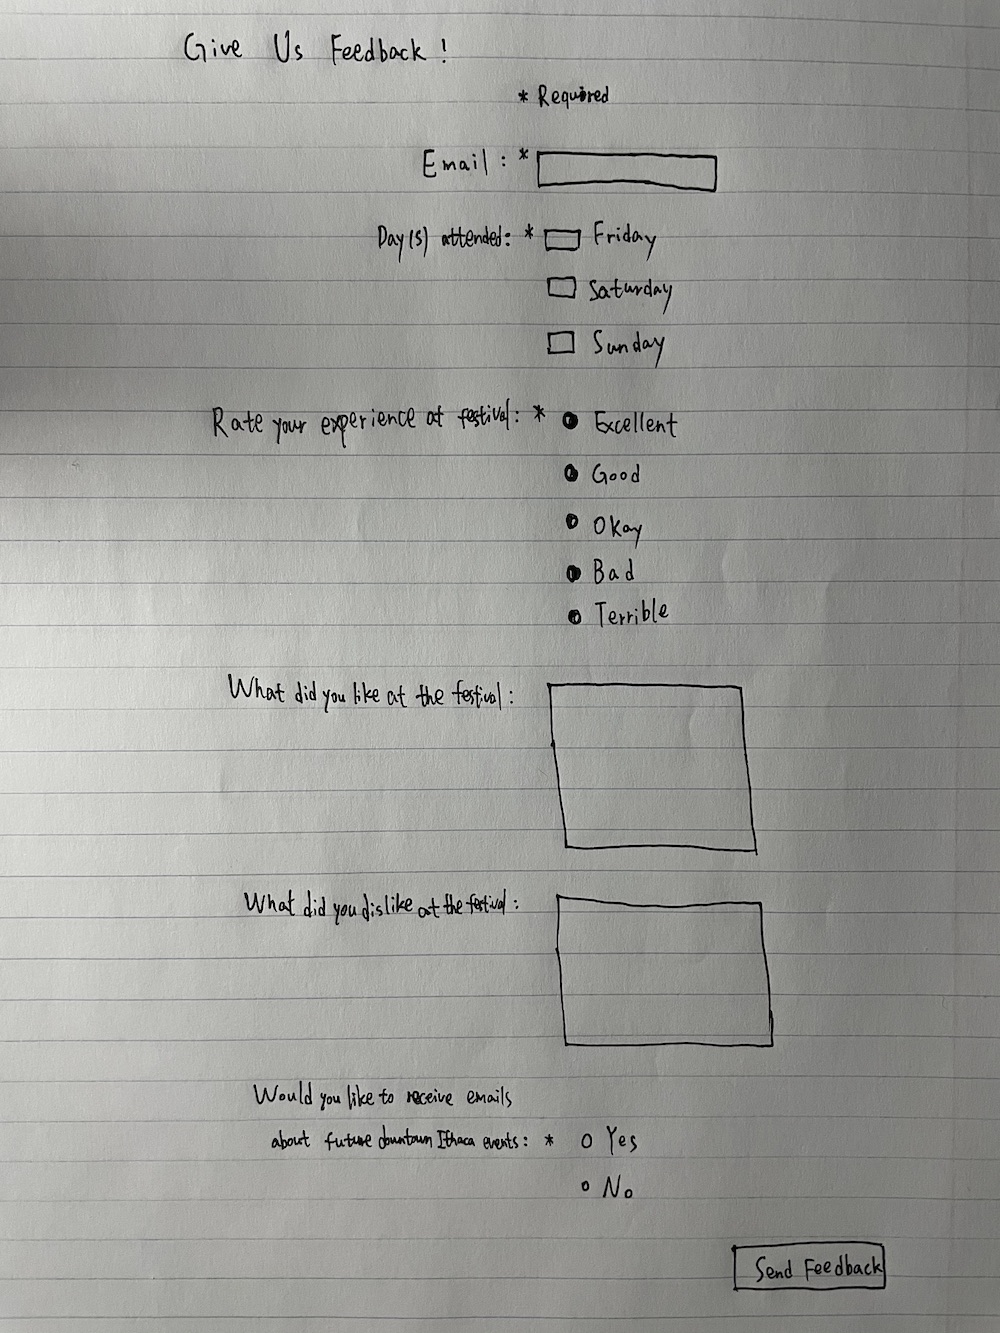 Give Us Feedback!
* Required
Email: *
Day(s) attended: * Friday
Saturday
Sunday
Rate your experience at festival: * Excellent
Good
Okay
Bad
Terrible
What did you like at the festival:
What did you dislike at the festival:
Would you like to receive emails
about future downtown Ithaca events: * Yes
No
Send Feedback